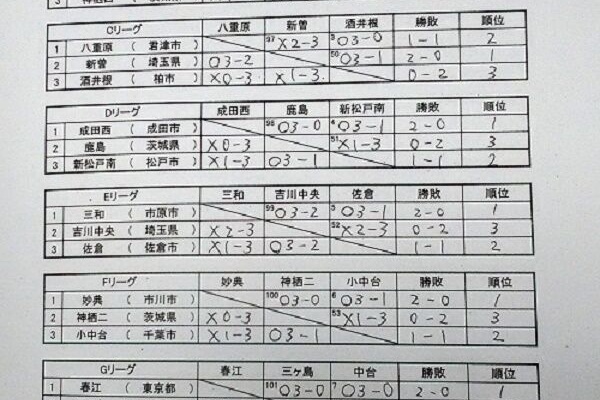 Cリーグ 八重原 新曽 酒井根 勝敗 順位
1 八重原 ( 君津市 ) 97 X2-3 5 O3-0 1-1 2
2 新曽 ( 埼玉県 ) O3-2 50 O3-1 2-0 1
3 酒井根 ( 柏市 ) X0-3 X1-3 0-2 3
Dリーグ 成田西 鹿島 新松戸南 勝敗 順位
1 成田西 ( 成田市 ) 98 O3-0 4 O3-1 2-0 1
2 鹿島 ( 茨城県 ) X0-3 51 X1-3 0-2 3
3 新松戸南 ( 松戸市 ) X1-3 O3-1 1-1 2
Eリーグ 三和 吉川中央 佐倉 勝敗 順位
1 三和 ( 市原市 ) 99 O3-2 5 O3-1 2-0 1
2 吉川中央 ( 埼玉県 ) X2-3 52 X2-3 0-2 3
3 佐倉 ( 佐倉市 ) X1-3 O3-2 1-1 2
Fリーグ 妙典 神栖二 小中台 勝敗 順位
1 妙典 ( 市川市 ) 100 O3-0 6 O3-1 2-0 1
2 神栖二 ( 茨城県 ) X0-3 53 X1-3 0-2 3
3 小中台 ( 千葉市 ) X1-3 O3-1 1-1 2
Gリーグ 春江 三ヶ島 中台 勝敗 順位
1 春江 ( 東京都 ) 101 O3-0 7 O3-0 2-0 1